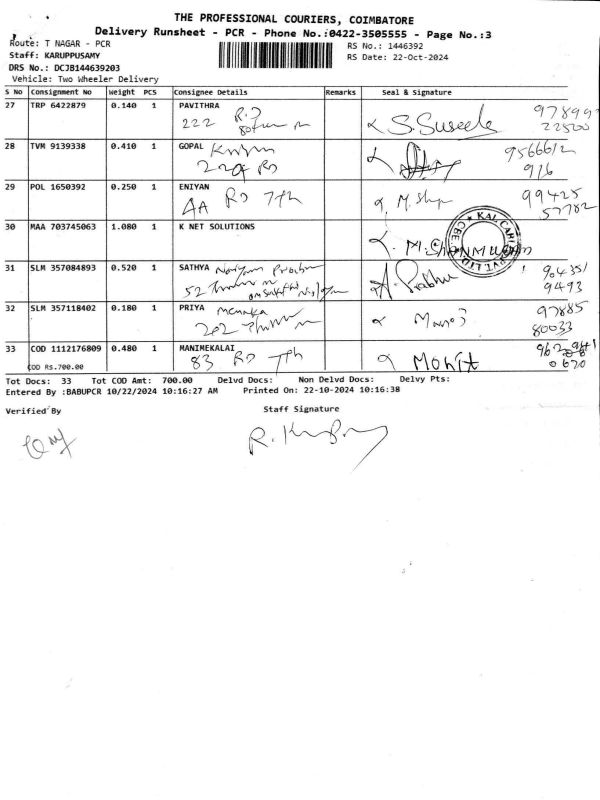 THE PROFESSIONAL COURIERS, COIMBATORE
Delivery Runsheet - PCR - Phone No.:0422-3505555 - Page No.:3
Route: T NAGAR - PCR
RS No.: 1446392
Staff: KARUPPUSAMY
RS Date: 22-Oct-2024
DRS No.: DCJB144639203
Vehicle: Two Wheeler Delivery
S No Consignment No Weight PCS Consignee Details Remarks Seal & Signature
27 TRP 6422879 0.140 1 PAVITHRA
222 R.S
S. Suseela
97899
22500
28 TVM 9139338 0.410 1 GOPAL
229 RS
9566612
916
29 POL 1650392 0.250 1 ENIYAN
4A RS 7th
99425
57782
30 MAA 703745063 1.080 1 K NET SOLUTIONS
M. SHANMUGAM
31 SLM 357084893 0.520 1 SATHYA
52
A. Prabhu
904351
9493
32 SLM 357118402 0.180 1 PRIYA
202
Manoj
97885
80033
33 COD 1112176809 0.480 1 MANIMEKALAI
COD RS.700.00
83 RS 7th
Mohit
0670
Tot Docs: 33 Tot COD Amt: 700.00 Delvd Docs: Non Delvd Docs: Delvy Pts:
Entered By :BABUPCR 10/22/2024 10:16:27 AM Printed On: 22-10-2024 10:16:38
Verified By
Staff Signature